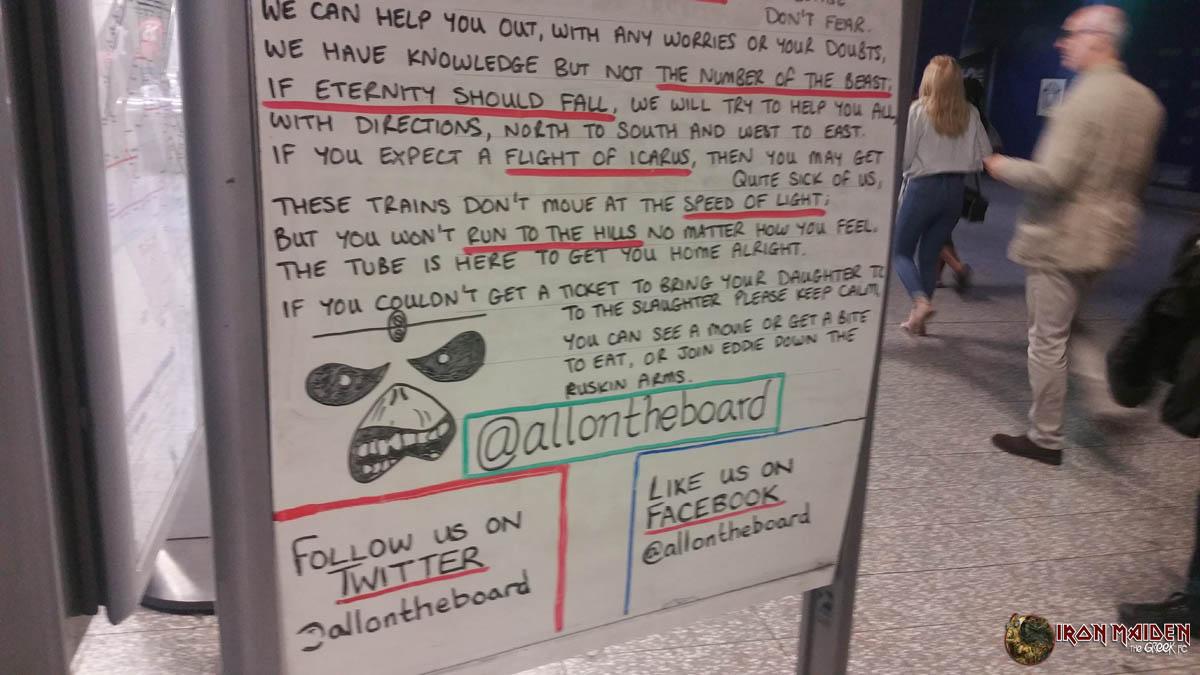 DON'T FEAR.
WE CAN HELP YOU OUT, WITH ANY WORRIES OR YOUR DOUBTS,
WE HAVE KNOWLEDGE BUT NOT THE NUMBER OF THE BEAST,
IF ETERNITY SHOULD FALL, WE WILL TRY TO HELP YOU ALL,
WITH DIRECTIONS, NORTH TO SOUTH AND WEST TO EAST.
IF YOU EXPECT A FLIGHT OF ICARUS, THEN YOU MAY GET
QUITE SICK OF US,
THESE TRAINS DON'T MOVE AT THE SPEED OF LIGHT;
BUT YOU WON'T RUN TO THE HILLS NO MATTER HOW YOU FEEL.
THE TUBE IS HERE TO GET YOU HOME ALRIGHT.
IF YOU COULDN'T GET A TICKET TO BRING YOUR DAUGHTER TO
TO THE SLAUGHTER PLEASE KEEP CALM,
YOU CAN SEE A MOVIE OR GET A BITE
TO EAT, OR JOIN EDDIE DOWN THE
RUSKIN ARMS.
@allontheboard
FOLLOW US ON
TWITTER
@allontheboard
LIKE US ON
FACEBOOK
@allontheboard
IRON MAIDEN
THE GREEK FC